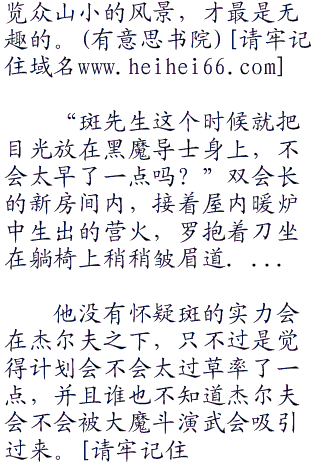 览众山小的风景，才最是无
趣的。(有意思书院)[请牢记
住域名www.heihei66.com]
“斑先生这个时候就把
目光放在黑魔导士身上，不
会太早了一点吗？”双会长
的新房间内，接着屋内暖炉
中生出的营火，罗抱着刀坐
在躺椅上稍稍皱眉道....
他没有怀疑斑的实力会
在杰尔夫之下，只不过是觉
得计划会不会太过草率了一
点，并且谁也不知道杰尔夫
会不会被大魔斗演武会吸引
过来。[请牢记住